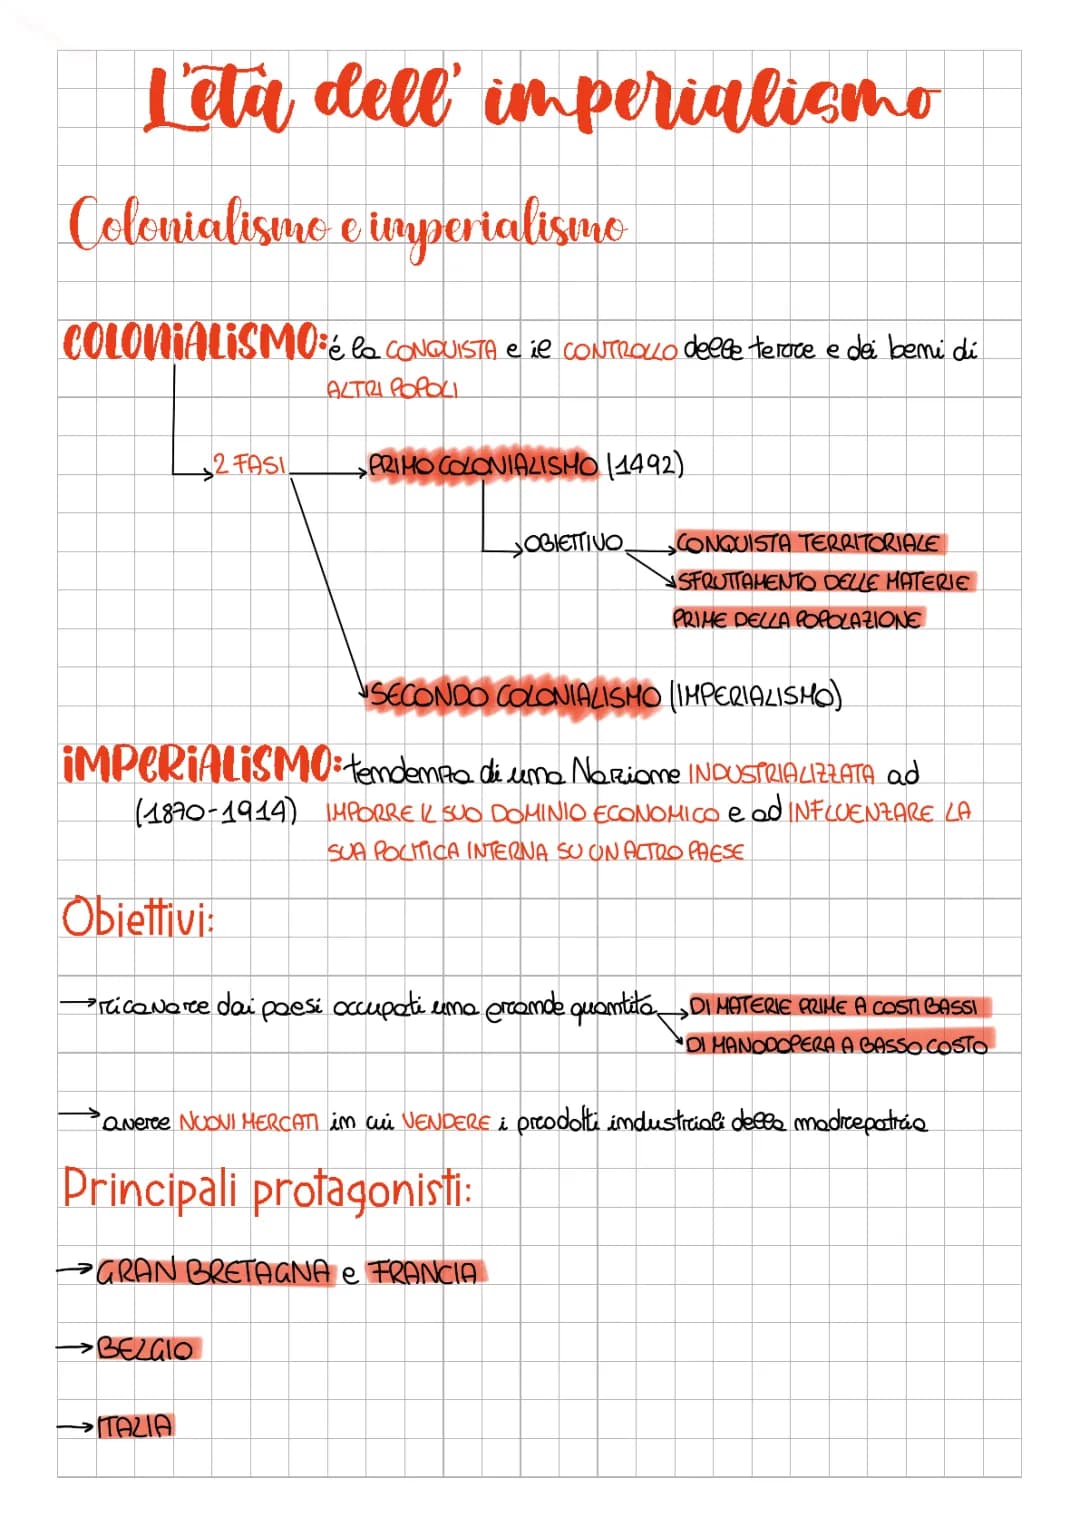 L'età dell' imperialismo
Colonialismo e imperialismo
COLONIALISMO: é la CONQUISTA e il CONTROLLO delle terre e dei beni di
ALTRI POPOLI
2 FASI PRIMO COLONIALISMO (1492)
OBIETTIVO CONQUISTA TERRITORIALE
SFRUTTAMENTO DELLE MATERIE
PRIME DELLA POPOLAZIONE
SECONDO COLONIALISMO (IMPERIALISMO)
IMPERIALISMO: tendenza di una Nazione INDUSTRIALIZZATA ad
(1870-1914) IMPORRE IL SUO DOMINIO ECONOMICO e ad INFLUENZARE LA
SUA POLITICA INTERNA SU UN ALTRO PAESE
Obiettivi:
→ ricavare dai paesi occupati una grande quantità DI MATERIE PRIME A COSTI BASSI
DI MANODOPERA A BASSO COSTO
→ avere NUOVI MERCATI in cui VENDERE i prodotti industriali della madrepatria
Principali protagonisti:
→ GRAN BRETAGNA e FRANCIA
→ BELGIO
→ ITALIA